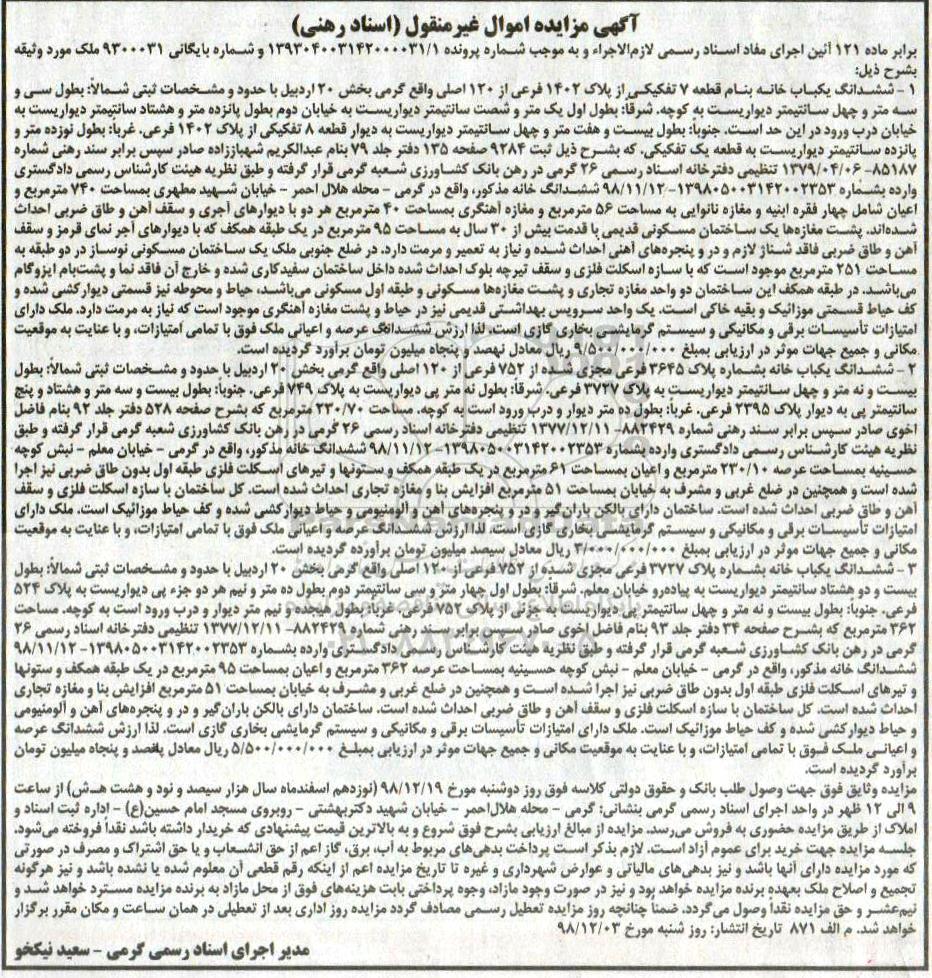 آگهی مزایده اموال غیرمنقول (اسناد رهنی)
برابر ماده ۱۲۱ آئین اجرای مفاد اسناد رسمی لازم‌الاجراء و به موجب شماره پرونده ۱۳۹۳۰۴۰۰۳۱۴۲۰۰۰۰۳۱/۱ و شماره بایگانی ۹۳۰۰۰۳۱ ملک مورد وثیقه
بشرح ذیل:
۱ - ششدانگ یکباب خانه بنام قطعه ۷ تفکیکی از پلاک ۱۴۰۲ فرعی از ۱۲۰ اصلی واقع گرمی بخش ۲۰ اردبیل با حدود و مشخصات ثبتی شمالاً: بطول سی و
سه متر و چهل سانتیمتر دیواریست به کوچه. شرقاً: بطول اول یک متر و شصت سانتیمتر دیواریست به خیابان دوم بطول پانزده متر و هشتاد سانتیمتر دیواریست به
خیابان درب ورود در این حد است. جنوباً: بطول بیست و هفت متر و چهل سانتیمتر دیواریست به دیوار قطعه ۸ تفکیکی از پلاک ۱۴۰۲ فرعی. غرباً: بطول نوزده متر و
پانزده سانتیمتر دیواریست به قطعه یک تفکیکی. که بشرح ذیل ثبت ۹۲۸۴ صفحه ۱۳۵ دفتر جلد ۷۹ بنام عبدالکریم شهباززاده صادر سپس برابر سند رهنی شماره
۸۵۱۸۷- ۱۳۷۹/۰۴/۰۶ تنظیمی دفترخانه اسناد رسمی ۲۶ گرمی در رهن بانک کشاورزی شعبه گرمی قرار گرفته و طبق نظریه هیئت کارشناس رسمی دادگستری
وارده بشماره ۱۳۹۸۰۵۰۰۳۱۴۲۰۰۲۳۵۳- ۹۸/۱۱/۱۲ ششدانگ خانه مذکور، واقع در گرمی - محله هلال احمر - خیابان شهید مطهری بمساحت ۷۴۰ مترمربع و
اعیان شامل چهار فقره ابنیه و مغازه نانوایی به مساحت ۵۶ مترمربع و مغازه آهنگری بمساحت ۴۰ مترمربع هر دو با دیوارهای آجری و سقف آهن و طاق ضربی احداث
شده‌اند. پشت مغازه‌ها یک ساختمان مسکونی قدیمی با قدمت بیش از ۳۰ سال به مساحت ۹۵ مترمربع در یک طبقه همکف که با دیوارهای آجر نمای قرمز و سقف
آهن و طاق ضربی فاقد شناژ لازم و در و پنجره‌های آهنی احداث شده و نیاز به تعمیر و مرمت دارد. در ضلع جنوبی ملک یک ساختمان مسکونی نوساز در دو طبقه به
مساحت ۲۵۱ مترمربع موجود است که با سازه اسکلت فلزی و سقف تیرچه بلوک احداث شده داخل ساختمان سفیدکاری شده و خارج آن فاقد نما و پشت‌بام ایزوگام
می‌باشد. در طبقه همکف این ساختمان دو واحد مغازه تجاری و پشت مغازه‌ها مسکونی و طبقه اول مسکونی می‌باشد، حیاط و محوطه نیز قسمتی دیوارکشی شده و
کف حیاط قسمتی موزائیک و بقیه خاکی است. یک واحد سرویس بهداشتی قدیمی نیز در حیاط و پشت مغازه آهنگری موجود است که نیاز به مرمت دارد. ملک دارای
امتیازات تأسیسات برقی و مکانیکی و سیستم گرمایشی بخاری گازی است. لذا ارزش ششدانگ عرصه و اعیانی ملک فوق با تمامی امتیازات، و با عنایت به موقعیت
مکانی و جمیع جهات موثر در ارزیابی بمبلغ ۹/۵۰۰/۰۰۰/۰۰۰ ریال معادل نهصد و پنجاه میلیون تومان برآورد گردیده است.
۲ - ششدانگ یکباب خانه بشماره پلاک ۳۶۴۵ فرعی مجزی شده از ۷۵۲ فرعی از ۱۲۰ اصلی واقع گرمی بخش ۲۰ اردبیل با حدود و مشخصات ثبتی شمالاً: بطول
بیست و نه متر و چهل سانتیمتر دیواریست به پلاک ۳۷۲۷ فرعی. شرقاً: بطول نه متر پی دیواریست به پلاک ۷۴۹ فرعی. جنوباً: بطول بیست و سه متر و هشتاد و پنج
سانتیمتر پی به دیوار پلاک ۲۳۹۵ فرعی. غرباً: بطول ده متر دیوار و درب ورود است به کوچه. مساحت ۲۳۰/۷۰ مترمربع که بشرح صفحه ۵۲۸ دفتر جلد ۹۲ بنام فاضل
اخوی صادر سپس برابر سند رهنی شماره ۸۸۲۴۲۹- ۱۳۷۷/۱۲/۱۱ تنظیمی دفترخانه اسناد رسمی ۲۶ گرمی در رهن بانک کشاورزی شعبه گرمی قرار گرفته و طبق
نظریه هیئت کارشناس رسمی دادگستری وارده بشماره ۱۳۹۸۰۵۰۰۳۱۴۲۰۰۲۳۵۳- ۹۸/۱۱/۱۲ ششدانگ خانه مذکور، واقع در گرمی - خیابان معلم - نبش کوچه
حسینیه بمساحت عرصه ۲۳۰/۱۰ مترمربع و اعیان بمساحت ۶۱ مترمربع در یک طبقه همکف و ستونها و تیرهای اسکلت فلزی طبقه اول بدون طاق ضربی نیز اجرا
شده است و همچنین در ضلع غربی و مشرف به خیابان بمساحت ۵۱ مترمربع افزایش بنا و مغازه تجاری احداث شده است. کل ساختمان با سازه اسکلت فلزی و سقف
آهن و طاق ضربی احداث شده است. ساختمان دارای بالکن باران‌گیر و در و پنجره‌های آهن و آلومنیومی و حیاط دیوارکشی شده و کف حیاط موزائیک است. ملک دارای
امتیازات تأسیسات برقی و مکانیکی و سیستم گرمایشی بخاری گازی است. لذا ارزش ششدانگ عرصه و اعیانی ملک فوق با تمامی امتیازات، و با عنایت به موقعیت
مکانی و جمیع جهات موثر در ارزیابی بمبلغ ۳/۰۰۰/۰۰۰/۰۰۰ ریال معادل سیصد میلیون تومان برآورده گردیده است.
۳ - ششدانگ یکباب خانه بشماره پلاک ۳۷۲۷ فرعی مجزی شده از ۷۵۲ فرعی از ۱۲۰ اصلی واقع گرمی بخش ۲۰ اردبیل با حدود و مشخصات ثبتی شمالاً: بطول
بیست و دو هشتاد سانتیمتر دیواریست به پیاده‌رو خیابان معلم. شرقاً: بطول اول چهار متر و سی سانتیمتر دوم بطول ده متر و نیم هر دو جزء پی دیواریست به پلاک ۵۲۴
فرعی. جنوباً: بطول بیست و نه متر و چهل سانتیمتر پی دیواریست به جزئی از پلاک ۷۵۲ فرعی. غرباً: بطول هیجده و نیم متر دیوار و درب ورود است به کوچه. مساحت
۳۶۲ مترمربع که بشرح صفحه ۳۴ دفتر جلد ۹۳ بنام فاضل اخوی صادر سپس برابر سند رهنی شماره ۸۸۲۴۲۹- ۱۳۷۷/۱۲/۱۱ تنظیمی دفترخانه اسناد رسمی ۲۶
گرمی در رهن بانک کشاورزی شعبه گرمی قرار گرفته و طبق نظریه هیئت کارشناس رسمی دادگستری وارده بشماره ۱۳۹۸۰۵۰۰۳۱۴۲۰۰۲۳۵۳- ۹۸/۱۱/۱۲
ششدانگ خانه مذکور، واقع در گرمی - خیابان معلم - نبش کوچه حسینیه بمساحت عرصه ۳۶۲ مترمربع و اعیان بمساحت ۹۵ مترمربع در یک طبقه همکف و ستونها
و تیرهای اسکلت فلزی طبقه اول بدون طاق ضربی نیز اجرا شده است و همچنین در ضلع غربی و مشرف به خیابان بمساحت ۵۱ مترمربع افزایش بنا و مغازه تجاری
احداث شده است. کل ساختمان با سازه اسکلت فلزی و سقف آهن و طاق ضربی احداث شده است. ساختمان دارای بالکن باران‌گیر و در و پنجره‌های آهن و آلومنیومی
و حیاط دیوارکشی شده و کف حیاط موزائیک است. ملک دارای امتیازات تأسیسات برقی و مکانیکی و سیستم گرمایشی بخاری گازی است. لذا ارزش ششدانگ عرصه
و اعیانی ملک فوق با تمامی امتیازات، و با عنایت به موقعیت مکانی و جمیع جهات موثر در ارزیابی بمبلغ ۵/۵۰۰/۰۰۰/۰۰۰ ریال معادل پانصد و پنجاه میلیون تومان
برآورد گردیده است.
مزایده وثایق فوق جهت وصول طلب بانک و حقوق دولتی کلاسه فوق روز دوشنبه مورخ ۹۸/۱۲/۱۹ (نوزدهم اسفندماه سال هزار سیصد و نود و هشت هـ.ش) از ساعت
۹ الی ۱۲ ظهر در واحد اجرای اسناد رسمی گرمی بنشانی: گرمی - محله هلال‌احمر - خیابان شهید دکتربهشتی - روبروی مسجد امام حسین(ع) - اداره ثبت اسناد و
املاک از طریق مزایده حضوری به فروش می‌رسد. مزایده از مبالغ ارزیابی بشرح فوق شروع و به بالاترین قیمت پیشنهادی که خریدار داشته باشد نقداً فروخته می‌شود.
جلسه مزایده جهت خرید برای عموم آزاد است. لازم بذکر است پرداخت بدهی‌های مربوط به آب، برق، گاز اعم از حق انشعاب و یا حق اشتراک و مصرف در صورتی
که مورد مزایده دارای آنها باشد و نیز بدهی‌های مالیاتی و عوارض شهرداری و غیره تا تاریخ مزایده اعم از اینکه رقم قطعی آن معلوم شده یا نشده باشد و نیز هرگونه
تجمیع و اصلاح ملک بعهده برنده مزایده خواهد بود و نیز در صورت وجود مازاد، وجوه پرداختی بابت هزینه‌های فوق از محل مازاد به برنده مزایده مسترد خواهد شد و
نیم‌عشر و حق مزایده نقداً وصول می‌گردد. ضمناً چنانچه روز مزایده تعطیل رسمی مصادف گردد مزایده روز اداری بعد از تعطیلی در همان ساعت و مکان مقرر برگزار
خواهد شد. م الف ۸۷۱ تاریخ انتشار: روز شنبه مورخ ۹۸/۱۲/۰۳
مدیر اجرای اسناد رسمی گرمی - سعید نیکخو